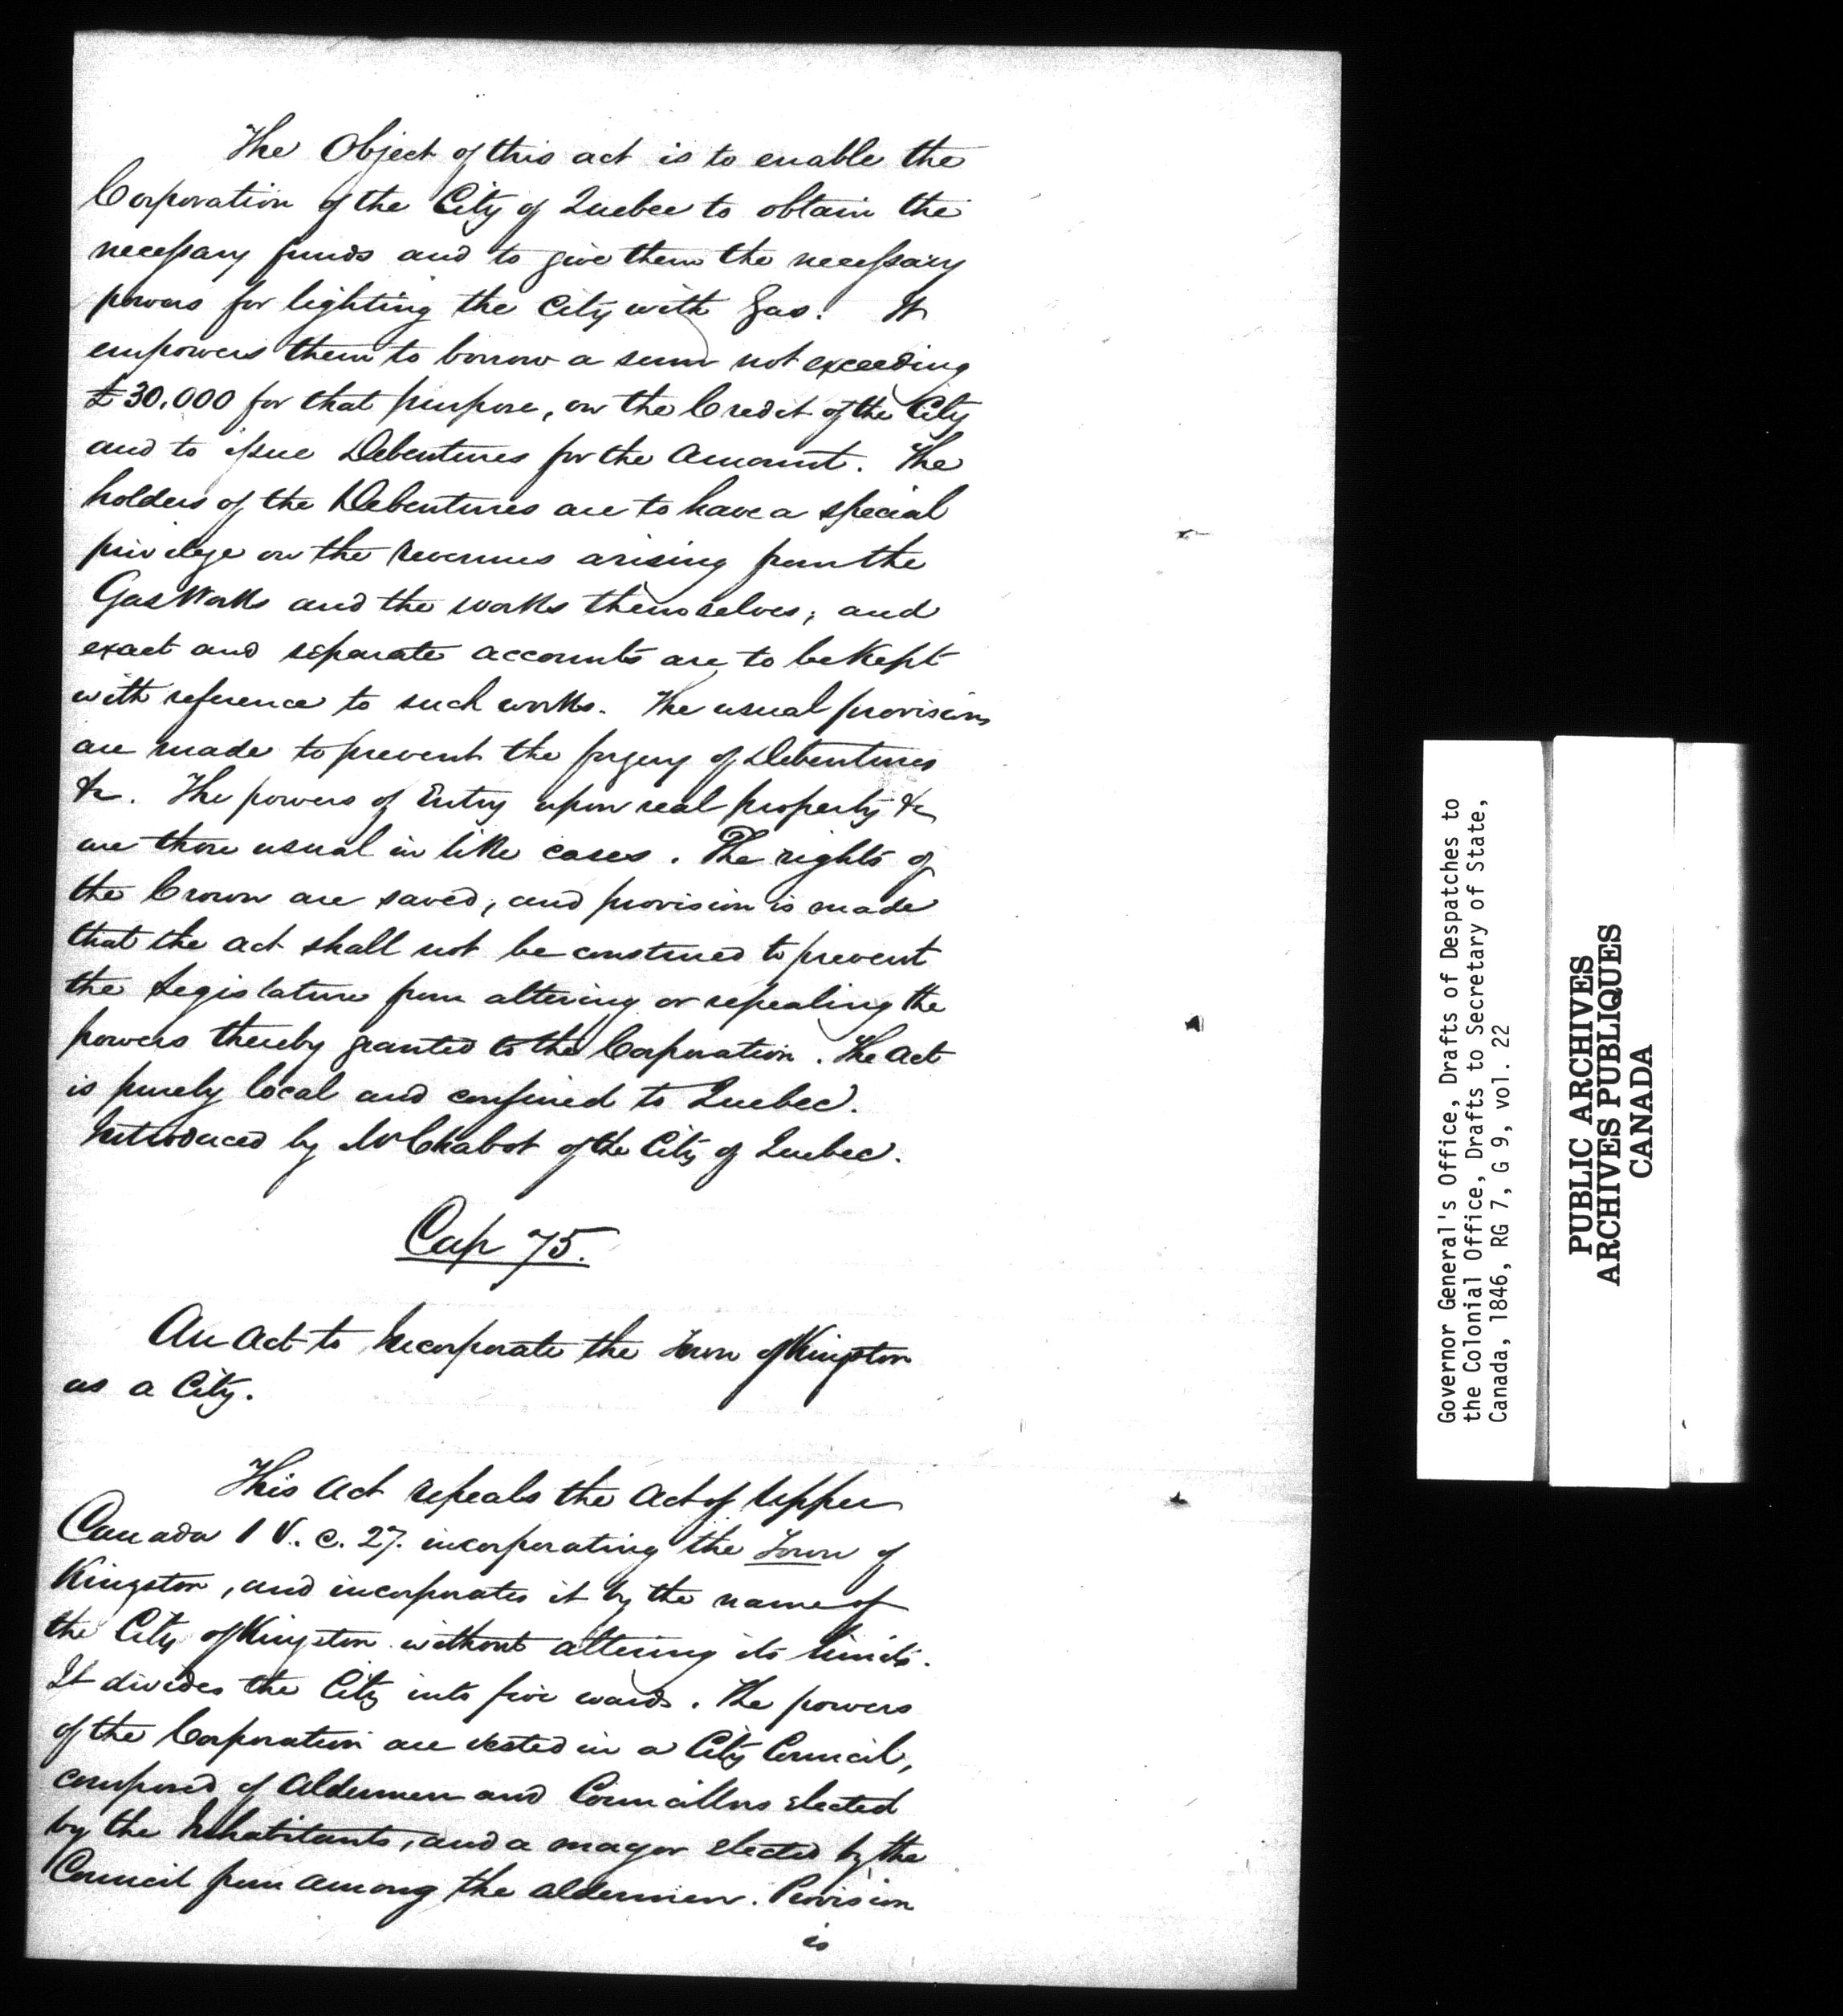 The Object of this act is to enable the
Corporation of the City of Quebec to obtain the
necessary funds and to give them the necessary
powers for lighting the City with Gas. It
empowers them to borrow a sum not exceeding
£30.000 for that purpose, on the Credit of the City
and to issue Debentures for the Amount. The
holders of the Debentures are to have a special
privilege on the revenues arising from the
Gas Works and the works themselves; and
exact and separate accounts are to be kept
with reference to such works. The usual provisions
are made to prevent the forgery of Debentures
&c. The powers of Entry upon real property &c
are those usual in like cases. The rights of
the Crown are saved, and provision is made
that the act shall not be construed to prevent
the Legislature from altering or repealing the
powers thereby granted to the Corporation. The Act
is purely local and confined to Quebec.
Introduced by Mr Chabot of the City of Quebec.
Cap 75.
An Act to Incorporate the Town of Kingston
as a City.
This Act repeals the Act of Upper
Canada 1 V. c. 27. incorporating the Town of
Kingston, and incorporates it by the name of
the City of Kingston without altering its limits.
It divides the City into five wards. The powers
of the Corporation are vested in a City Council,
composed of Aldermen and Councillors elected
by the Inhabitants, and a mayor elected by the
Council from among the aldermen. Provision
is
Governor General's Office, Drafts of Despatches to
the Colonial Office, Drafts to Secretary of State,
Canada, 1846, RG 7, G 9, vol. 22
PUBLIC ARCHIVES
ARCHIVES PUBLIQUES
CANADA